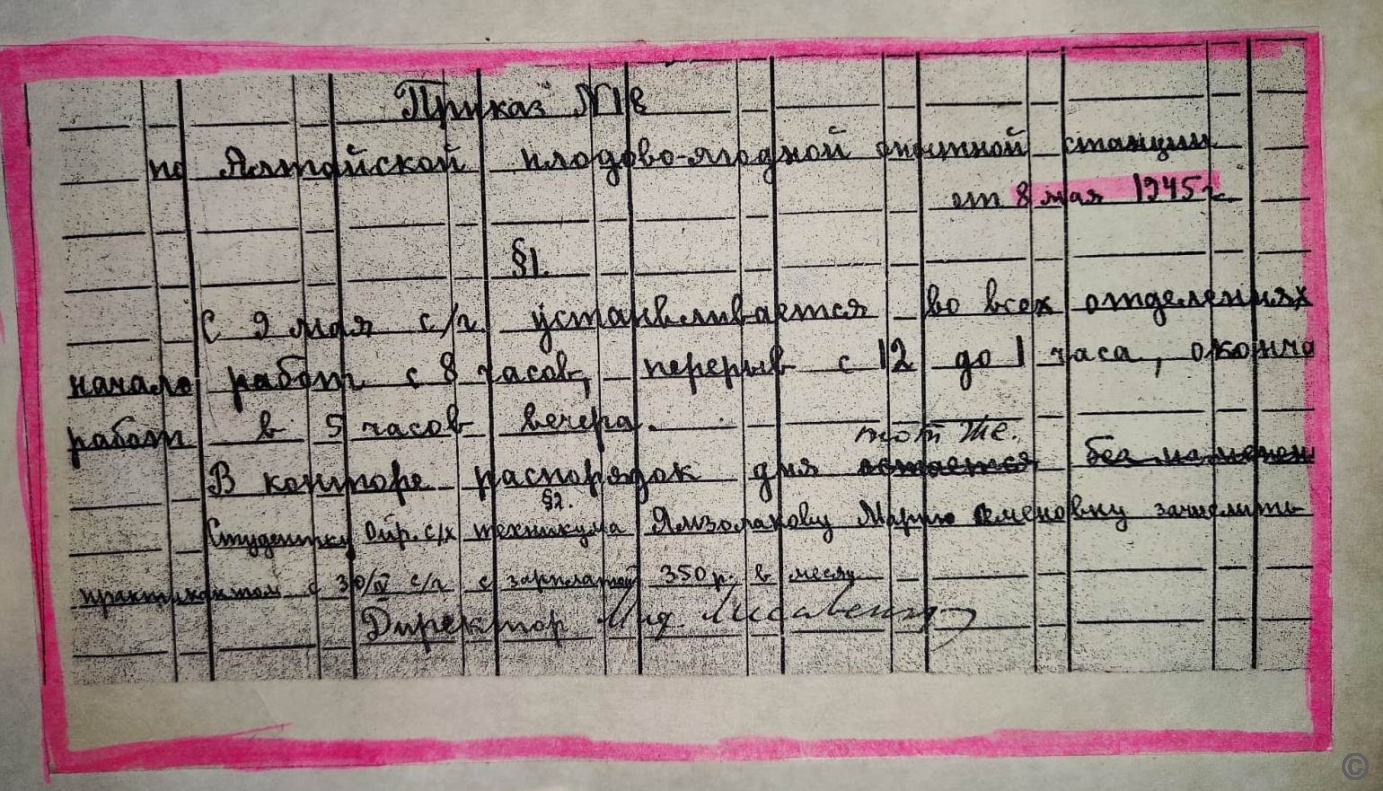 Приказ №18
по Алтайской плодово-ягодной опытной станции
от 8 мая 1945 г.
§1.
С 9 мая с/г. устанвливается во всех отделениях
начало работ с 8 часов, перерыв с 12 до 1 часа, оконча
работ в 5 часов вечера.
тот же.
В конторе распорядок дня остается без изменен
§2.
Студентку Ойр. с/х техникума Марию Семеновну зачислить
практикантом с 30/IV с/г с зарплатой 350 р. в месяц
Директор Лисавенко
©